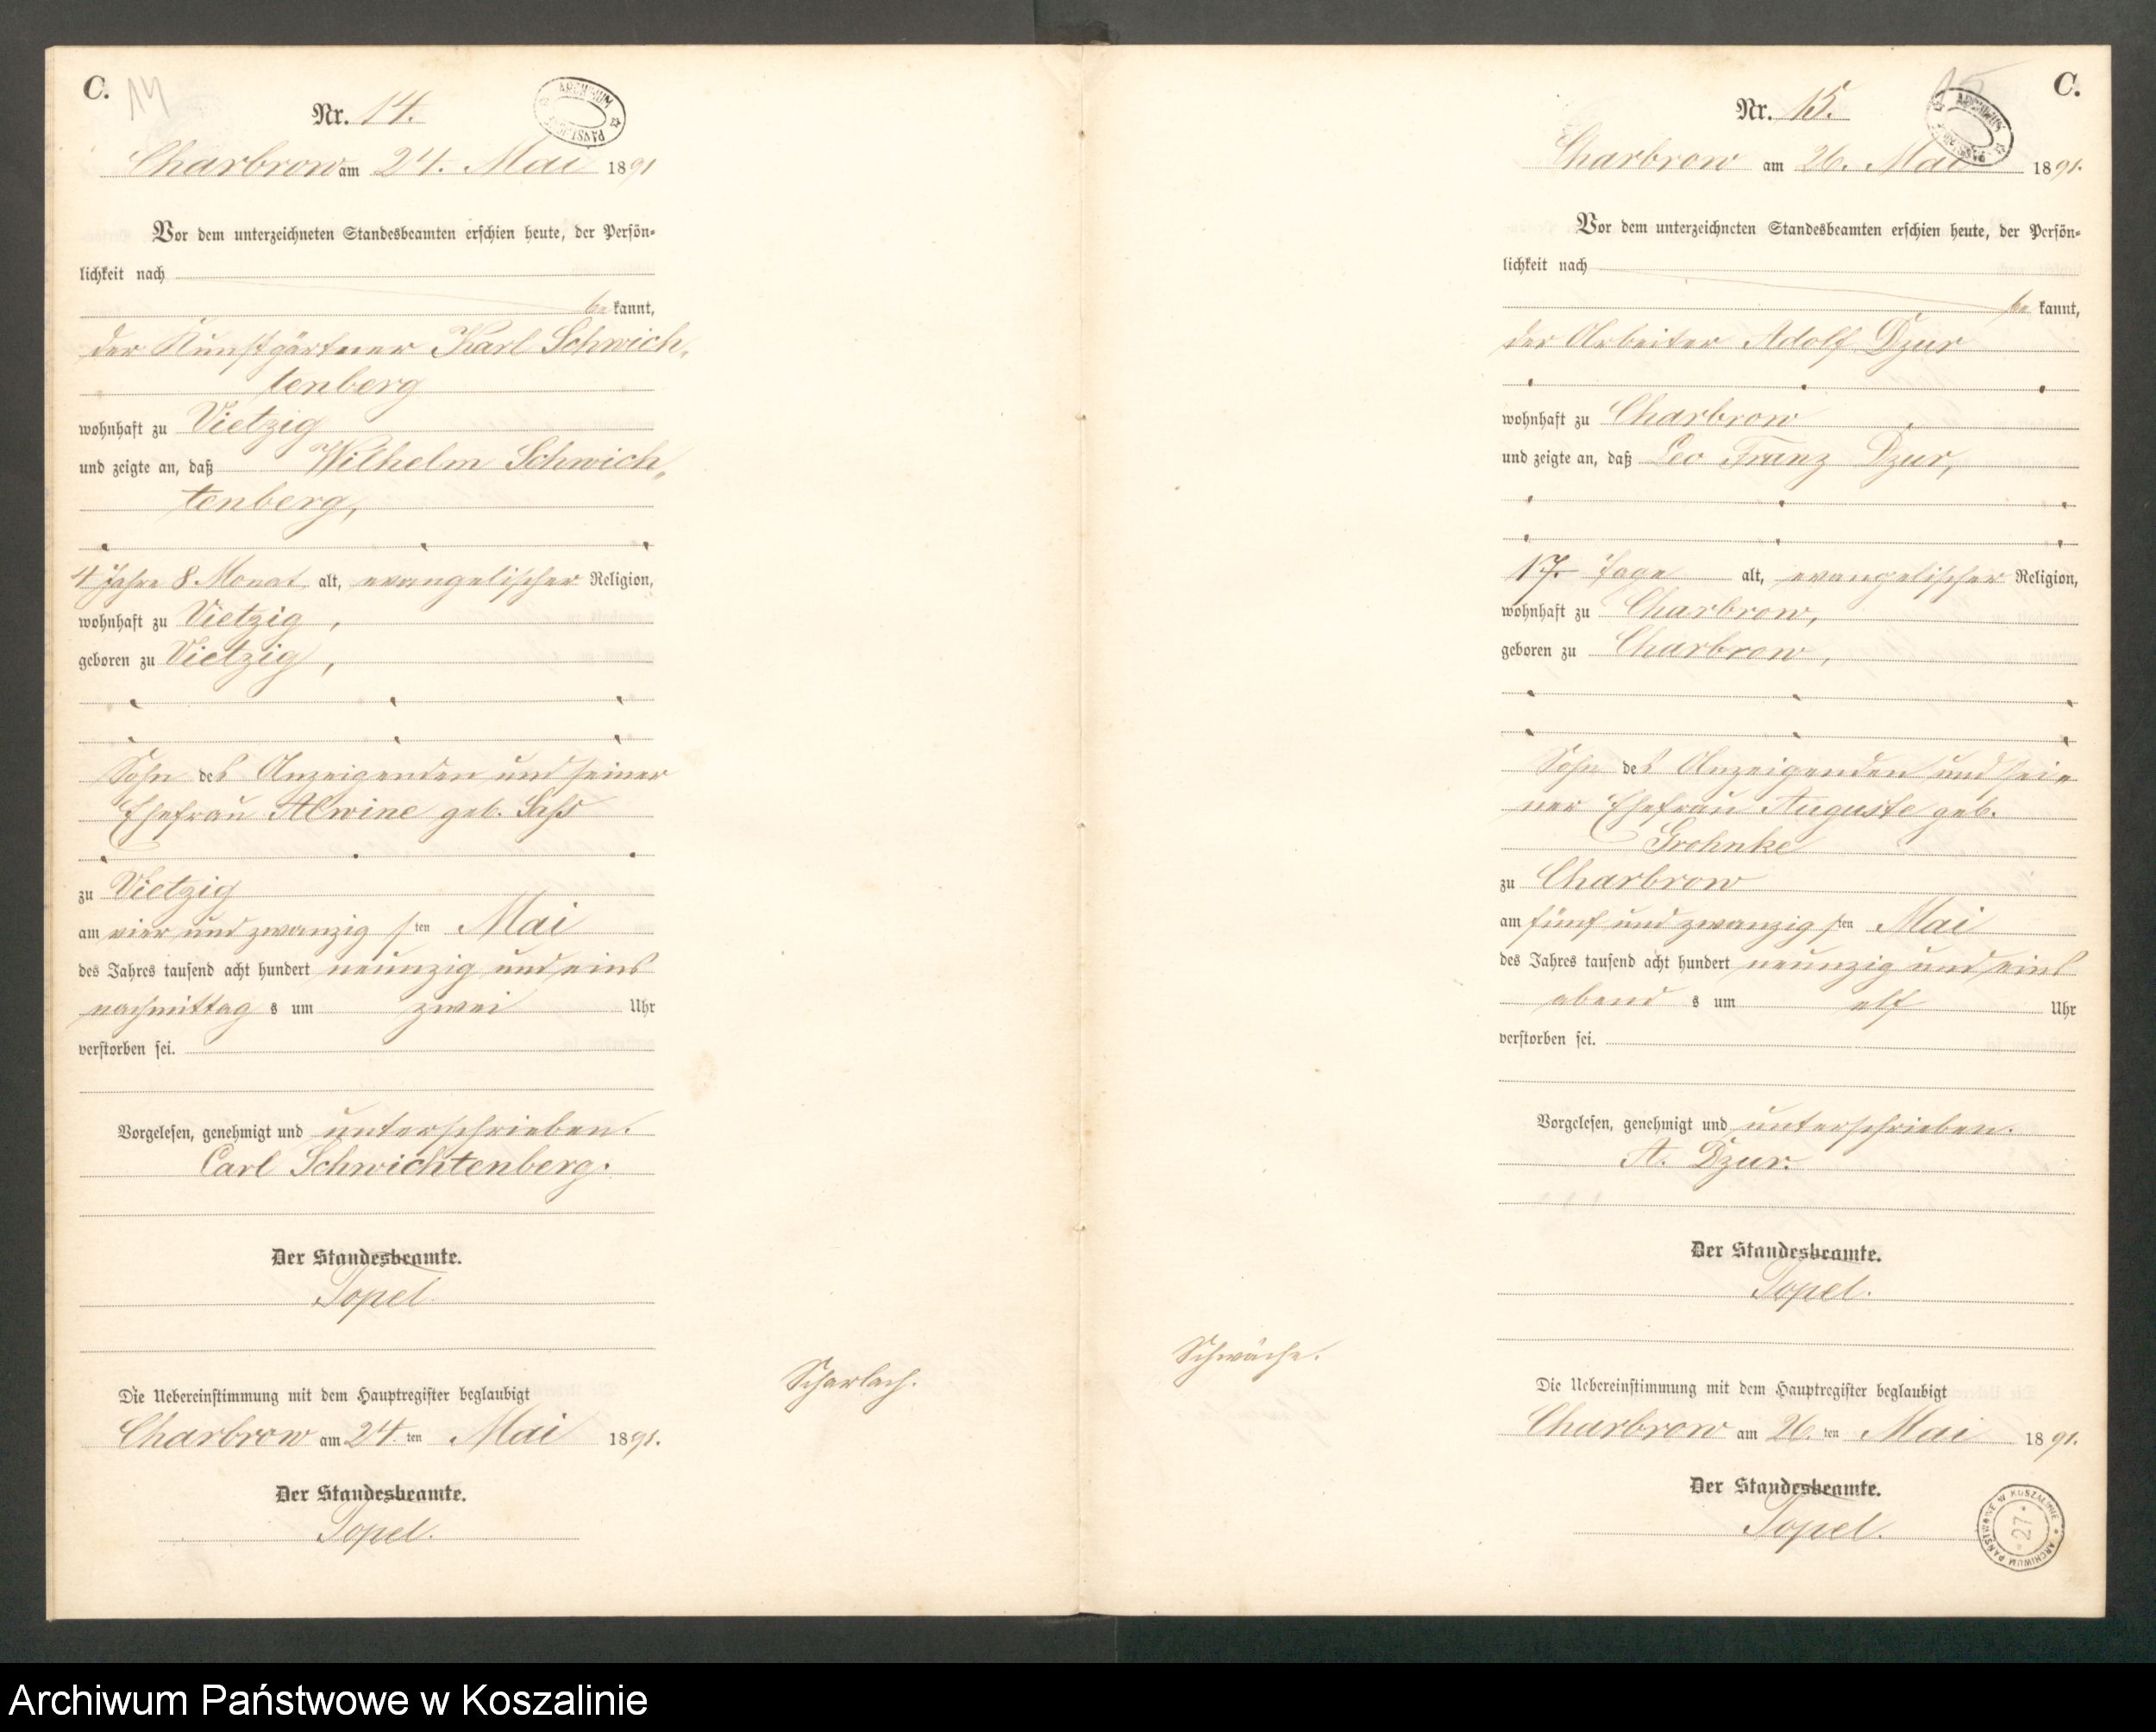 C.
14
Nr. 14.
ARCHIWUM
Charbrow am 24. Mai 1891
Vor dem unterzeichneten Standesbeamten erschien heute, der Persön-
lichkeit nach
bekannt,
der Kunstgärtner Karl Schwich-
tenberg
wohnhaft zu Vietzig
und zeigte an, daß Wilhelm Schwich-
tenberg,
4 Jahre 8 Monat alt, evangelischer Religion,
wohnhaft zu Vietzig,
geboren zu Vietzig,
Sohn des Anzeigenden und seiner
Ehefrau Alwine geb.
zu Vietzig
am vier und zwanzigsten Mai
des Jahres tausend acht hundert neunzig und eins
nachmittags um zwei Uhr
verstorben sei.
Vorgelesen, genehmigt und unterschrieben.
Carl Schwichtenberg.
Der Standesbeamte.
Topel.
Die Uebereinstimmung mit dem Hauptregister beglaubigt
Charbrow am 24.ten Mai 1891.
Der Standesbeamte.
Topel.
Scharlach.
C.
15
Nr. 15.
ARCHIWUM
Charbrow am 26. Mai 1891.
Vor dem unterzeichneten Standesbeamten erschien heute, der Persön-
lichkeit nach
bekannt,
der Arbeiter Adolf Dzur
wohnhaft zu Charbrow
und zeigte an, daß Leo Franz Dzur,
17. Tage alt, evangelischer Religion,
wohnhaft zu Charbrow,
geboren zu Charbrow,
Sohn des Anzeigenden und sei-
ner Ehefrau Auguste geb.
Grohnke
zu Charbrow
am fünf und zwanzigsten Mai
des Jahres tausend acht hundert neunzig und eins
abends um elf Uhr
verstorben sei.
Vorgelesen, genehmigt und unterschrieben.
A. Dzur.
Der Standesbeamte.
Topel.
Schwäche.
Die Uebereinstimmung mit dem Hauptregister beglaubigt
Charbrow am 26.ten Mai 1891.
Der Standesbeamte.
Topel.
ARCHIWUM PAŃSTWOWE W KOSZALINIE
27
Archiwum Państwowe w Koszalinie